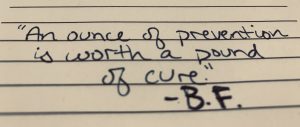 "An ounce of prevention
is worth a pound
of cure."
-B.F.